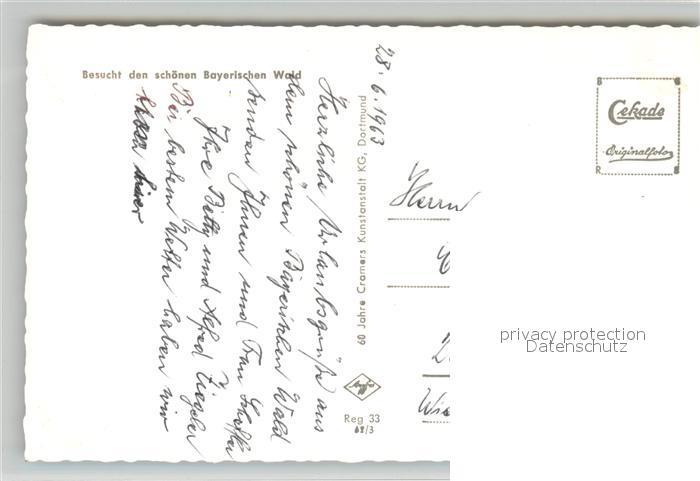 Besucht den schönen Bayerischen Wald
28.6.1963
Herzliche Urlaubsgrüße aus
dem schönen Bayerischen Wald
senden Ihnen und Frau
Ihre Betty und Alfred Ziegler
Bei bestem Wetter haben wir
hier
60 Jahre Cramers Kunstanstalt KG, Dortmund
Cekade
Originalfoto
Herrn
Agfa
Reg 33
62/3
privacy protection
Datenschutz